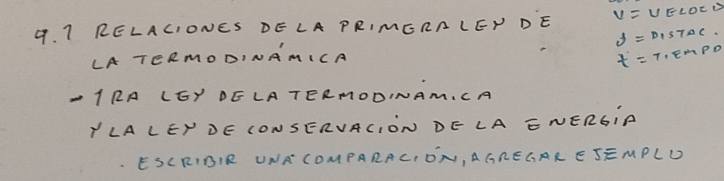 9.1 RELACIONES DE LA PRIMERA LEY DE
LA TERMODINÁMICA
- 1RA LEY DE LA TERMODINÁMICA
Y LA LEY DE CONSERVACIÓN DE LA ENERGÍA
. ESCRIBIR UNA COMPARACIÓN, AGREGAR EJEMPLO
V = VELOCID
d = DISTAC.
t = TIEMPO